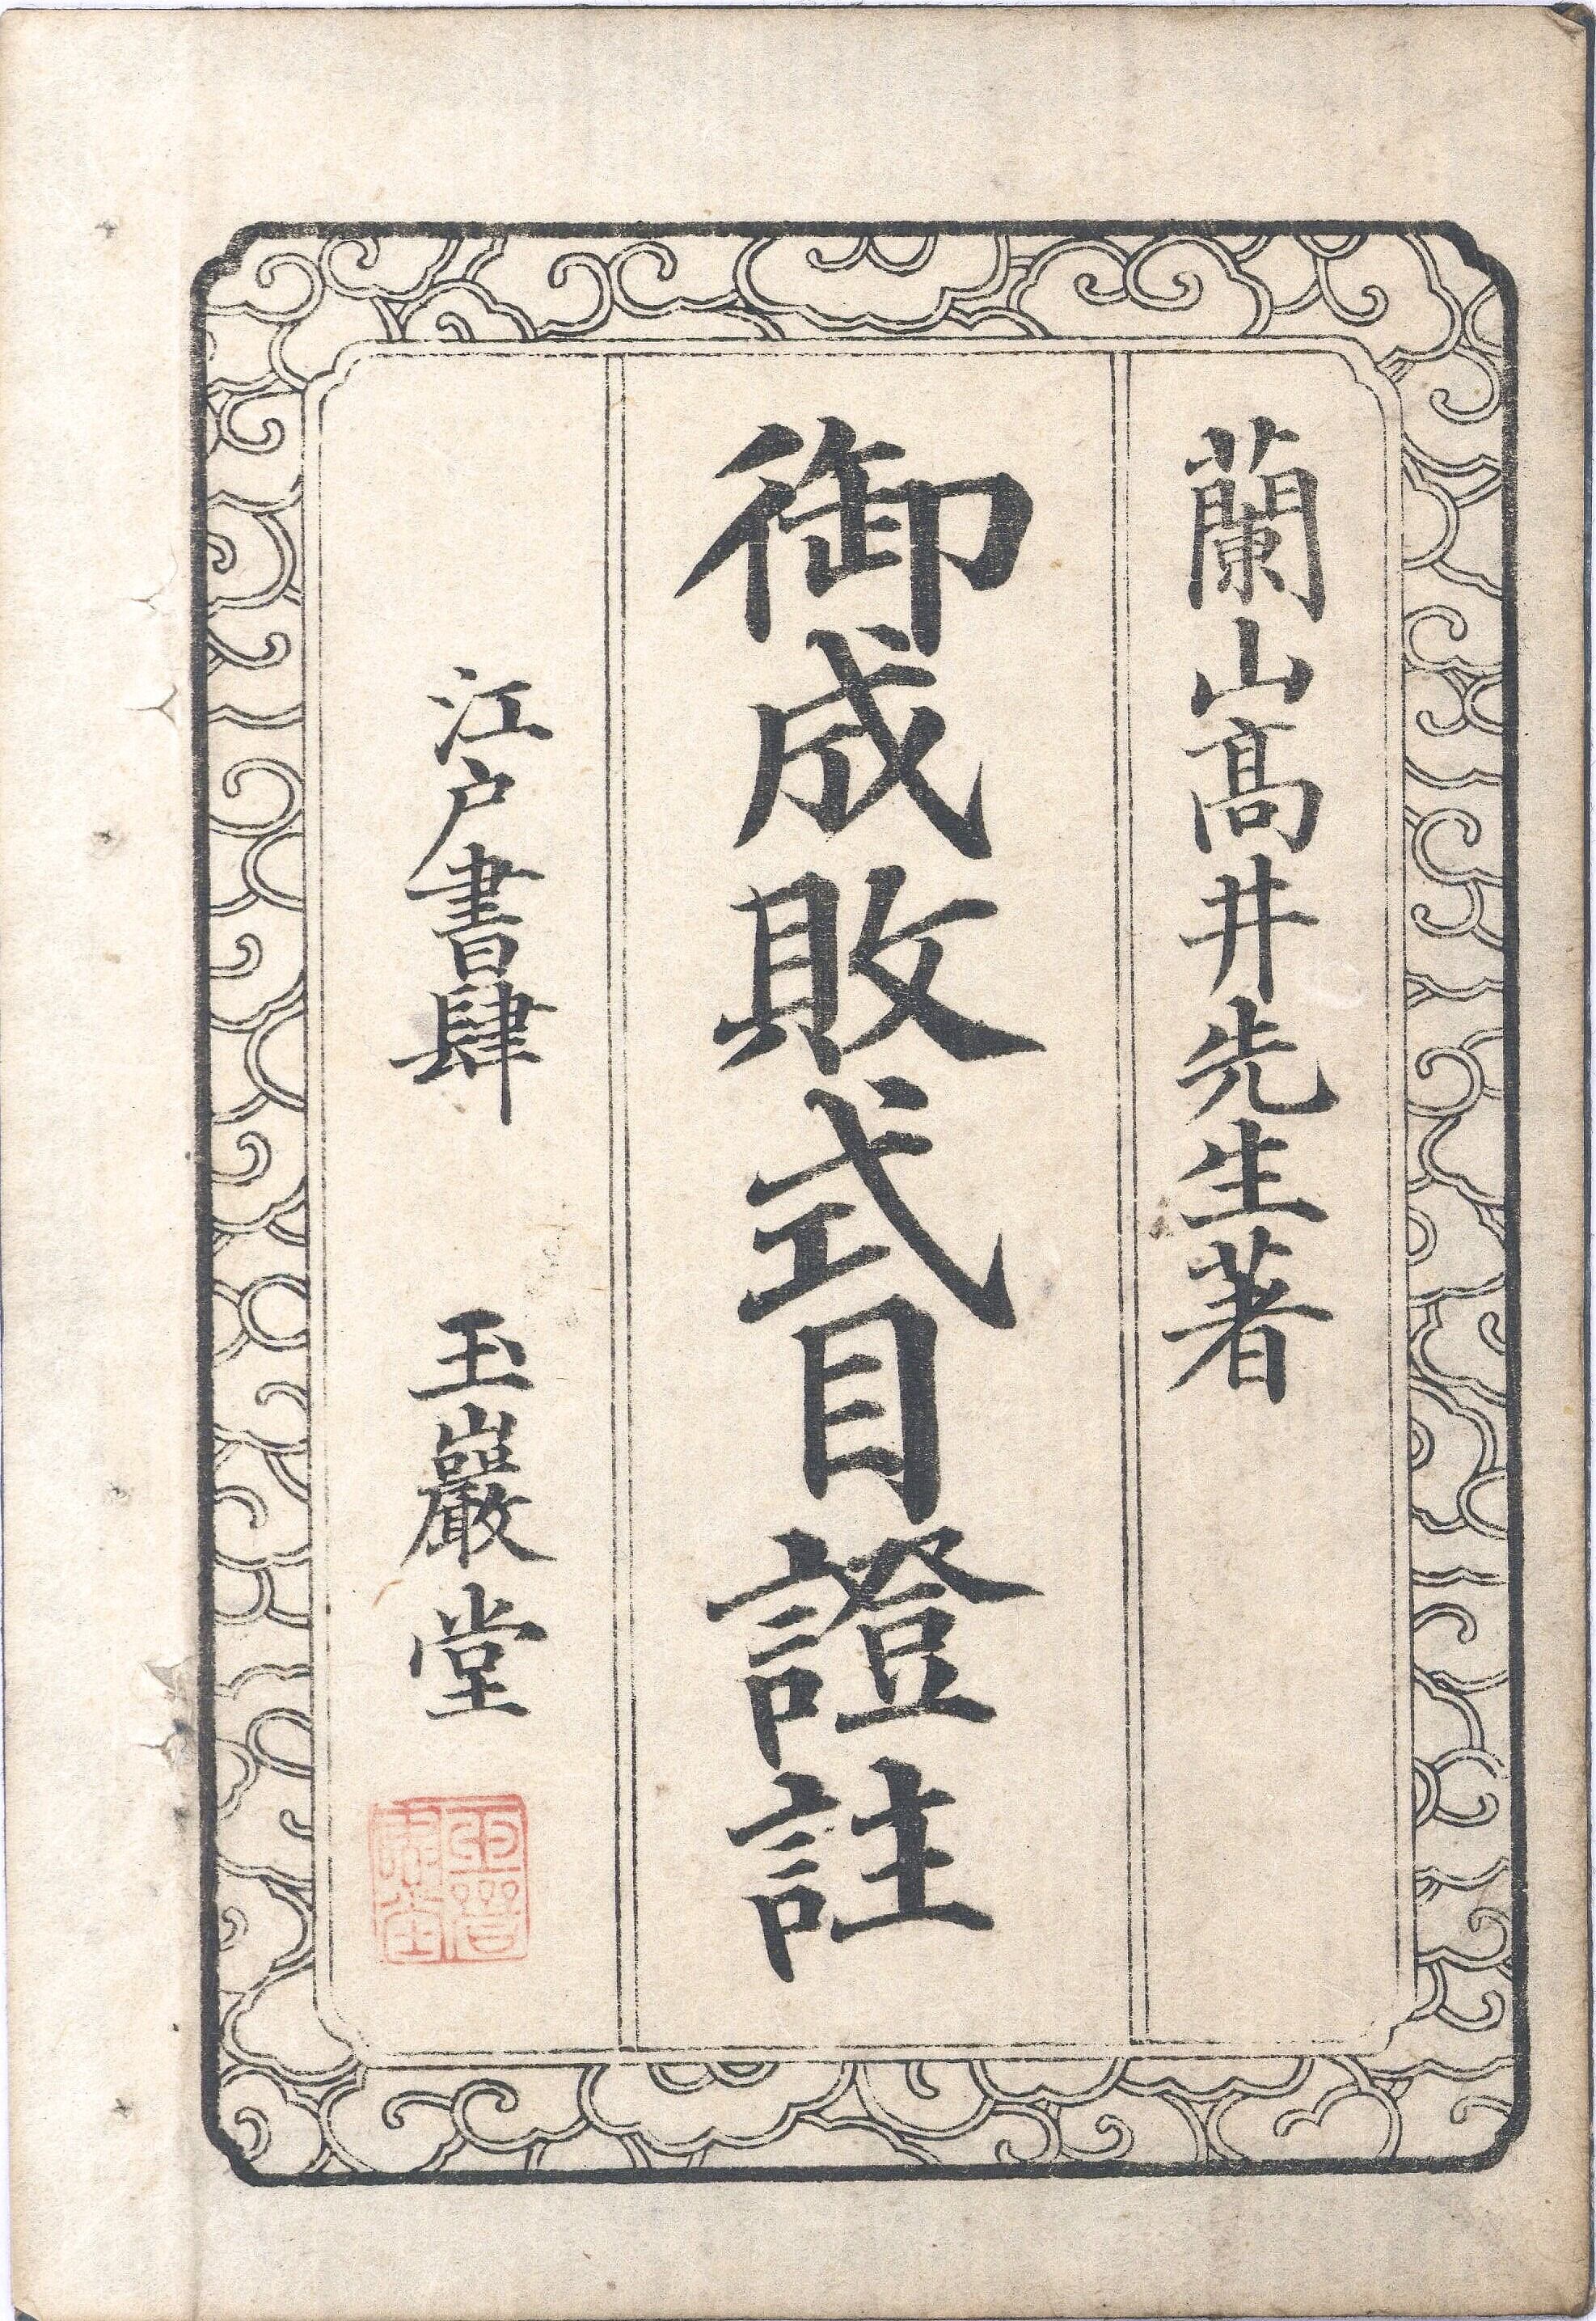 蘭山髙井先生著
御成敗式目證註
江戸書肆　玉巖堂